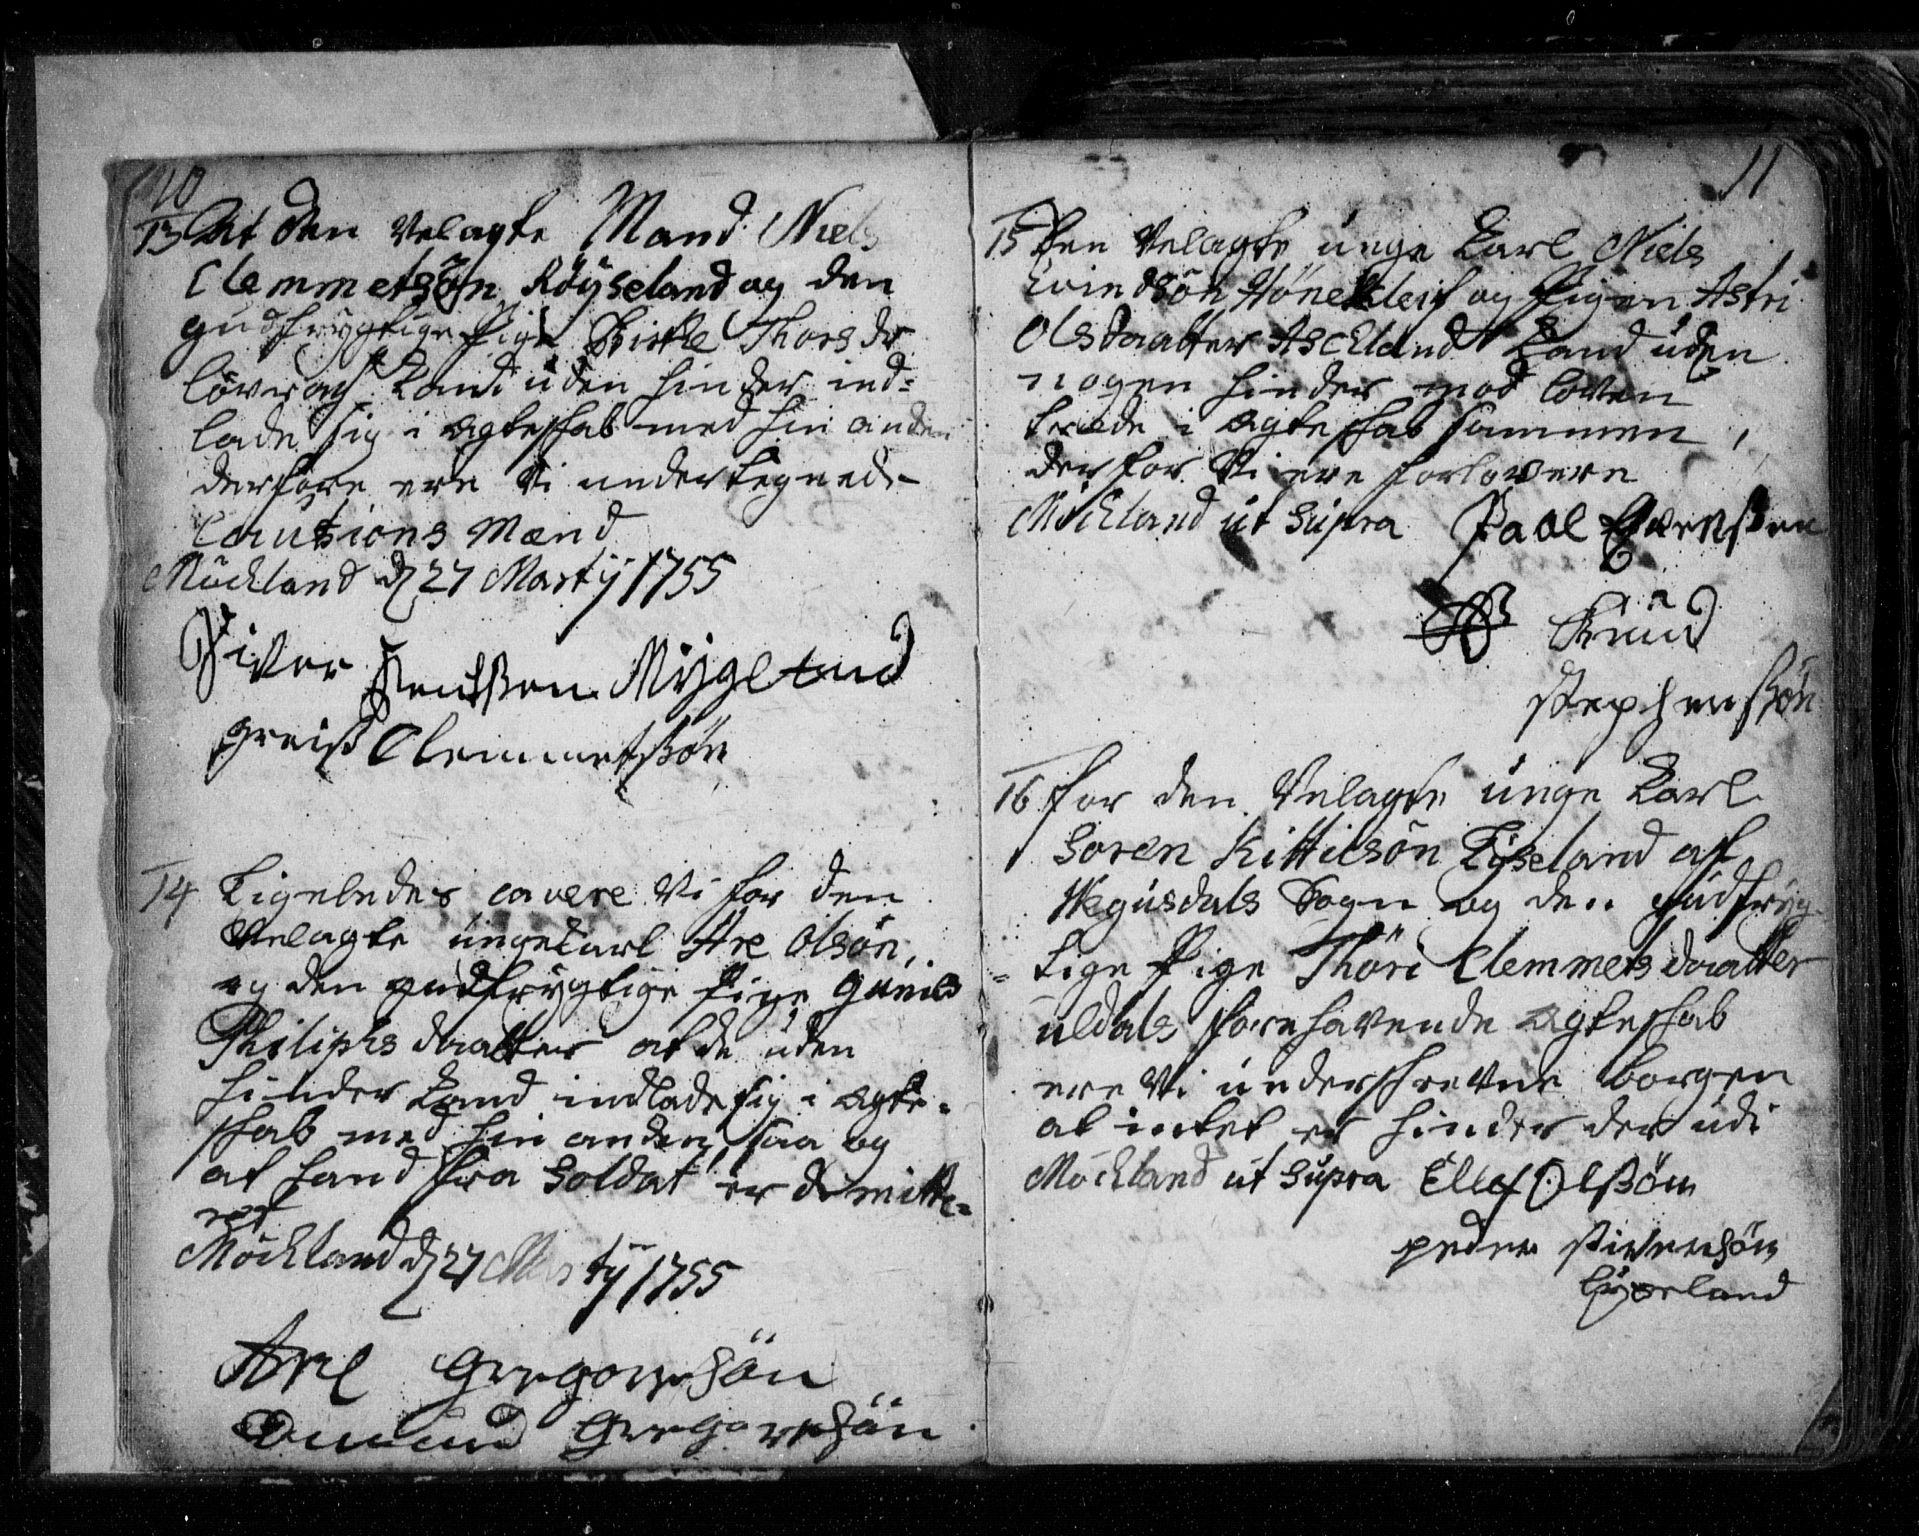 10
13 At den Velagte Mand Niels
Clemmetsøn Røÿseland og den
gudfrygtige Pige Birthe Thorsdr
kand uden hinder ind-
lade sig i ægteskab med hin anden
derfore ere Vi undertegnede
Cautions Mænd
Möckland d 27 Martij 1755
Siver Knudssen Mÿgland
greiß Clemmetßøn
14 Ligeledes cavere Vi for den
Velagte unge karl Are Olsøn,
og den gudfrygtige Pige Gunild
Philiphs daatter at de uden
hinder kand indlade sig i ægte-
skab med hin anden, saa og
at hand fra Soldat er dimitte-
ret
Möckland d 27 Martij 1755
Arel Gregorsøn
Omund Gregorsøn
11
15 For Velagte unge karl Niels
Evindsøn Hønekleif og Pigen Astri
Olsdaatter Aseland kand uden
nogen hinder mod loven
træde i ægteskab sammen,
derfor Vi ere forlovere
Möckland ut supra Paal
Knud
Stephensøn
16 For den Velagte unge karl
Soren Kittilsøn Lÿseland af
Wegusdals Sogn og den gudfryg-
tige Pige Thöri Clemmets daatter
uldals forehavende ægteskab
ere Vi underskrevne borgen
at intet er hinder der udi
Möckland ut supra Ellef Olßøn
peder Sivensøn
Lÿseland